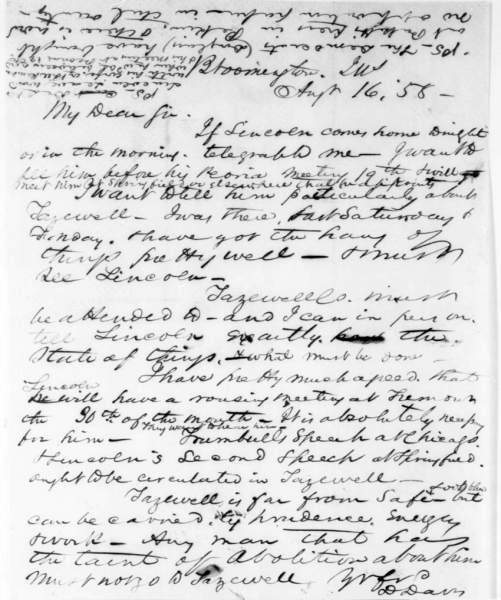 Bloomington. Ills
Augt 16, 58 -
My Dear Sir.
If Lincoln comes home tonight
or in the morning. telegraph me - I want to
see him before his Peoria meeting 19th & will
meet him at Springfield or elsewhere that he appoints
I want to tell him particularly about
Tazewell - I was there, last Saturday &
Sunday. I have got the hang of
things pretty well - I must
see Lincoln -
Tazewell Co. must
be attended to - and I can in person.
tell Lincoln exactly the
state of things. & what must be done -
I have pretty much agreed. that
Lincoln
he will have a rousing meeting at Tremont on
the 30th of the month - It is absolutely necessary
for him - They want to hear him - Trumbulls Speech at Chicago.
& Lincoln's Second Speech at Springfield.
ought to be circulated in Tazewell -
Tazewell is far from Safe - but
can be carried. by prudence. Energy
& work - Any man that has
the taint of Abolition about him
must not go to Tazewell. Yr frd
D Davis
PS - The Democrats have bought
out
PS
Lincoln